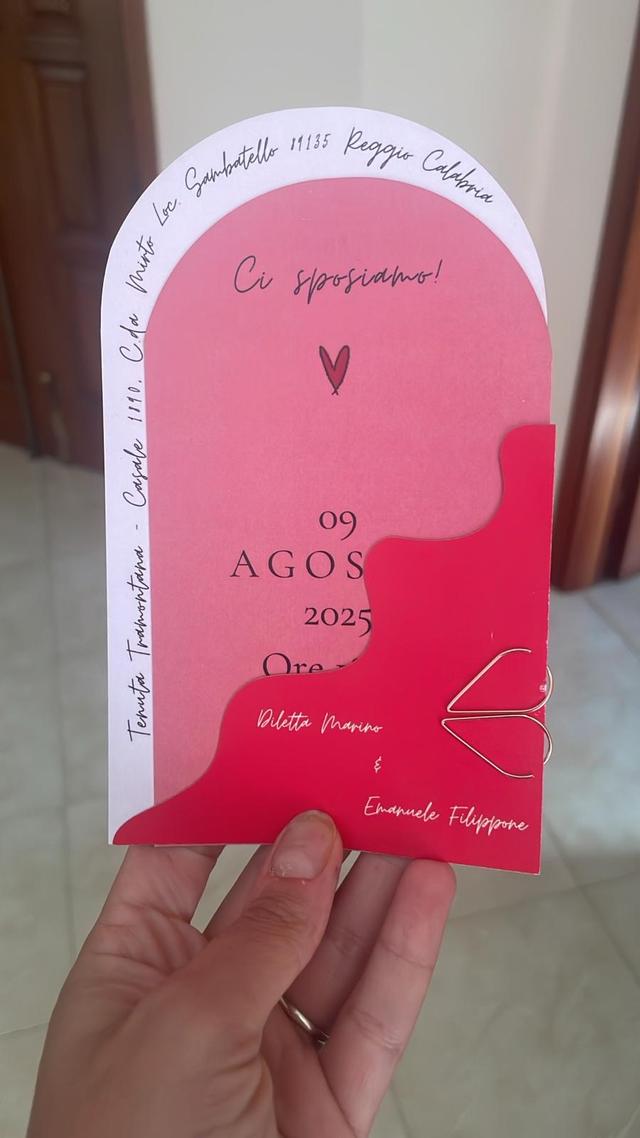 Tenuta Tramontana - Casale 1890. C.da Mirto Loc. Sambatello 89135 Reggio Calabria
Ci sposiamo!
09
AGOS
2025
Ore
Diletta Marino
&
Emanuele Filippone